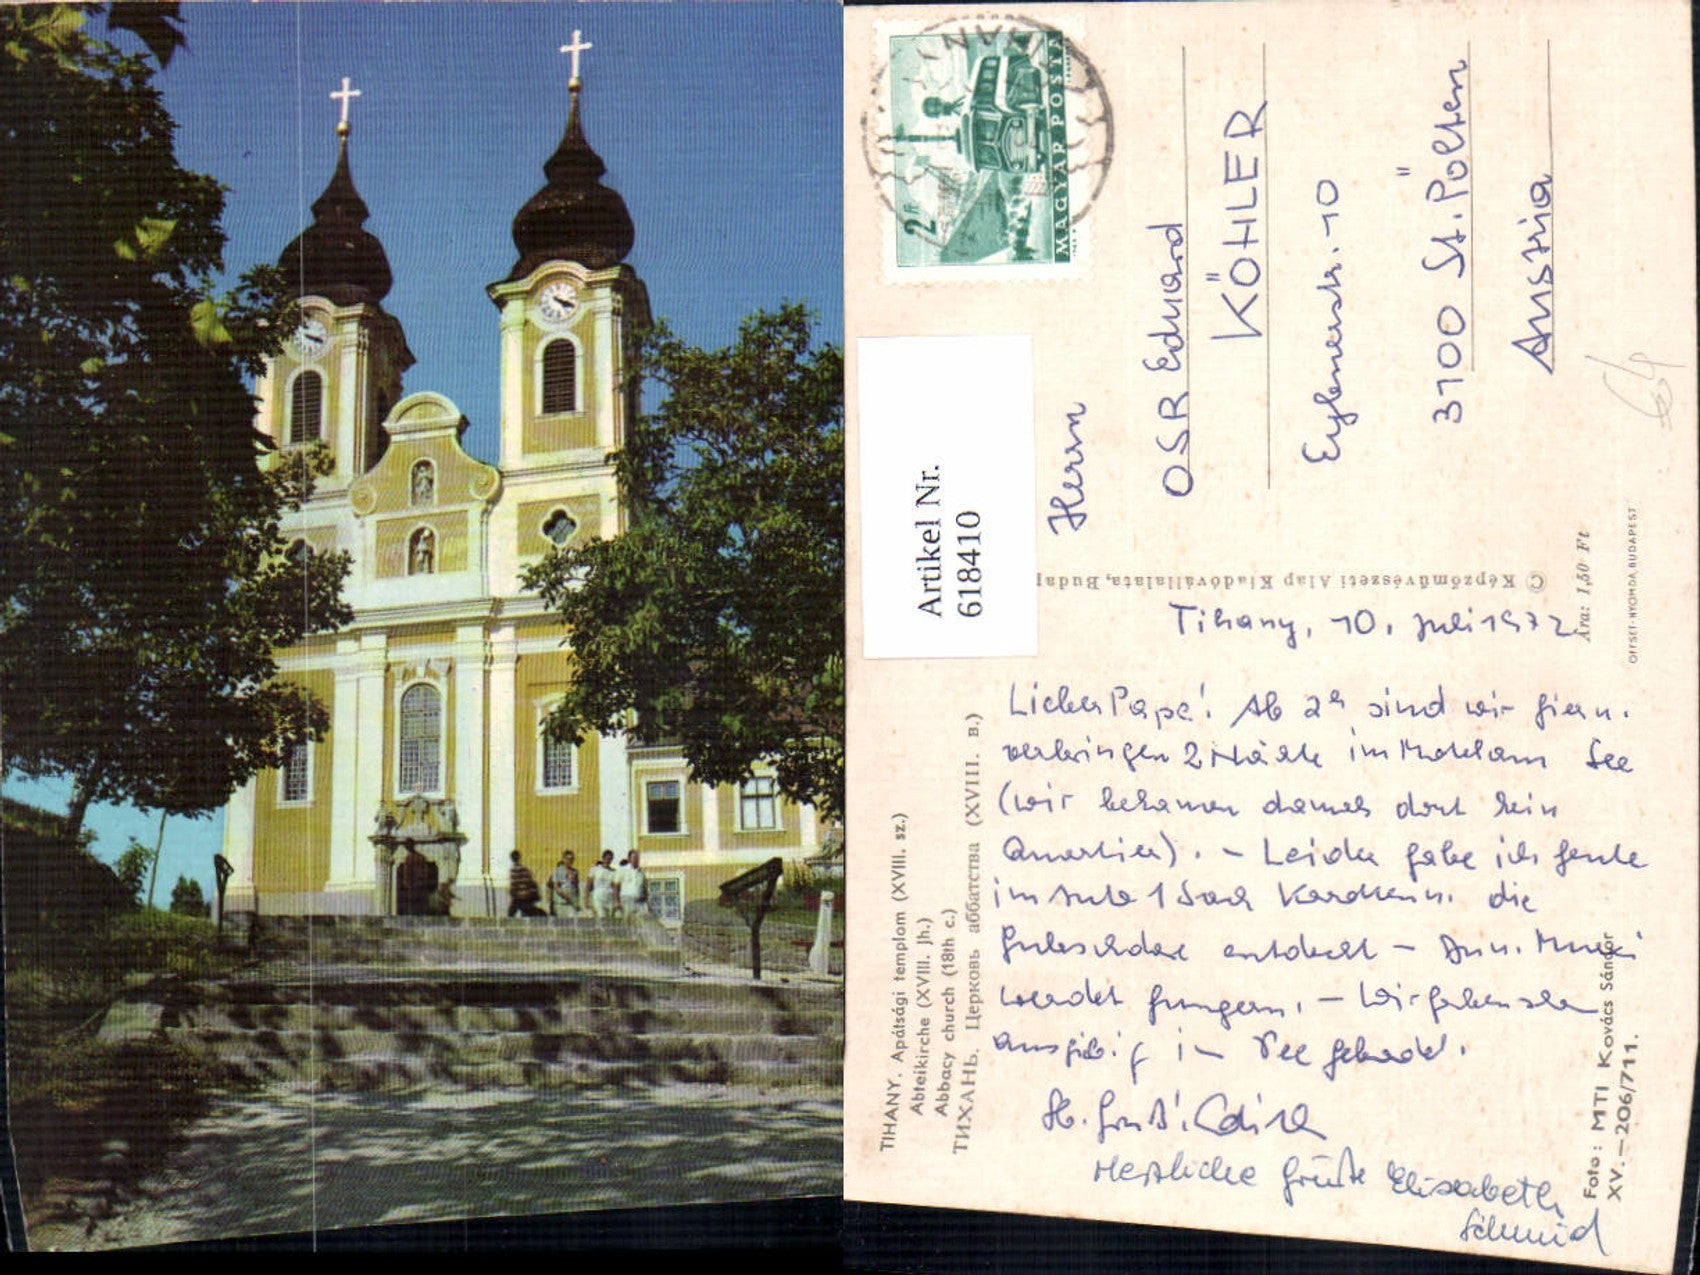 TIHANY
2 Ft
MAGYAR POSTA
Artikel Nr.
618410
Herrn
OSR Eduard
KÖHLER
10
3100 St. Pölten
Austria
64
© Képzőművészeti Alap Kiadóvállalata, Budap
Ára: 1,50 Ft
OFFSET-NYOMDA BUDAPEST
Tihany, 10. Juli 1972
Lieber Papa! Ab 2h sind wir hier u.
verbringen 2 Nächte im See
(wir bekamen damals dort kein
Quartier). - Leider habe ich heute
im Auto 1 Sack die
entdeckt -
werdet hungern. - Wir haben
ausgiebig im See gebadet.
Hz. Gruß!
Herzliche Grüße Elisabeth
Schmid
TIHANY. Apátsági templom (XVIII. sz.)
Abteikirche (XVIII. Jh.)
Abbacy church (18th c.)
ТИХАНЬ. Церковь аббатства (XVIII. в.)
Foto: MTI Kovács Sándor
XV.—206/711.